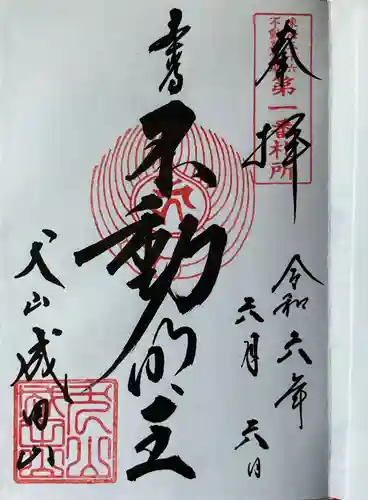 奉拝
第一番札所
令和六年
六月六日
不動明王
犬山成田山